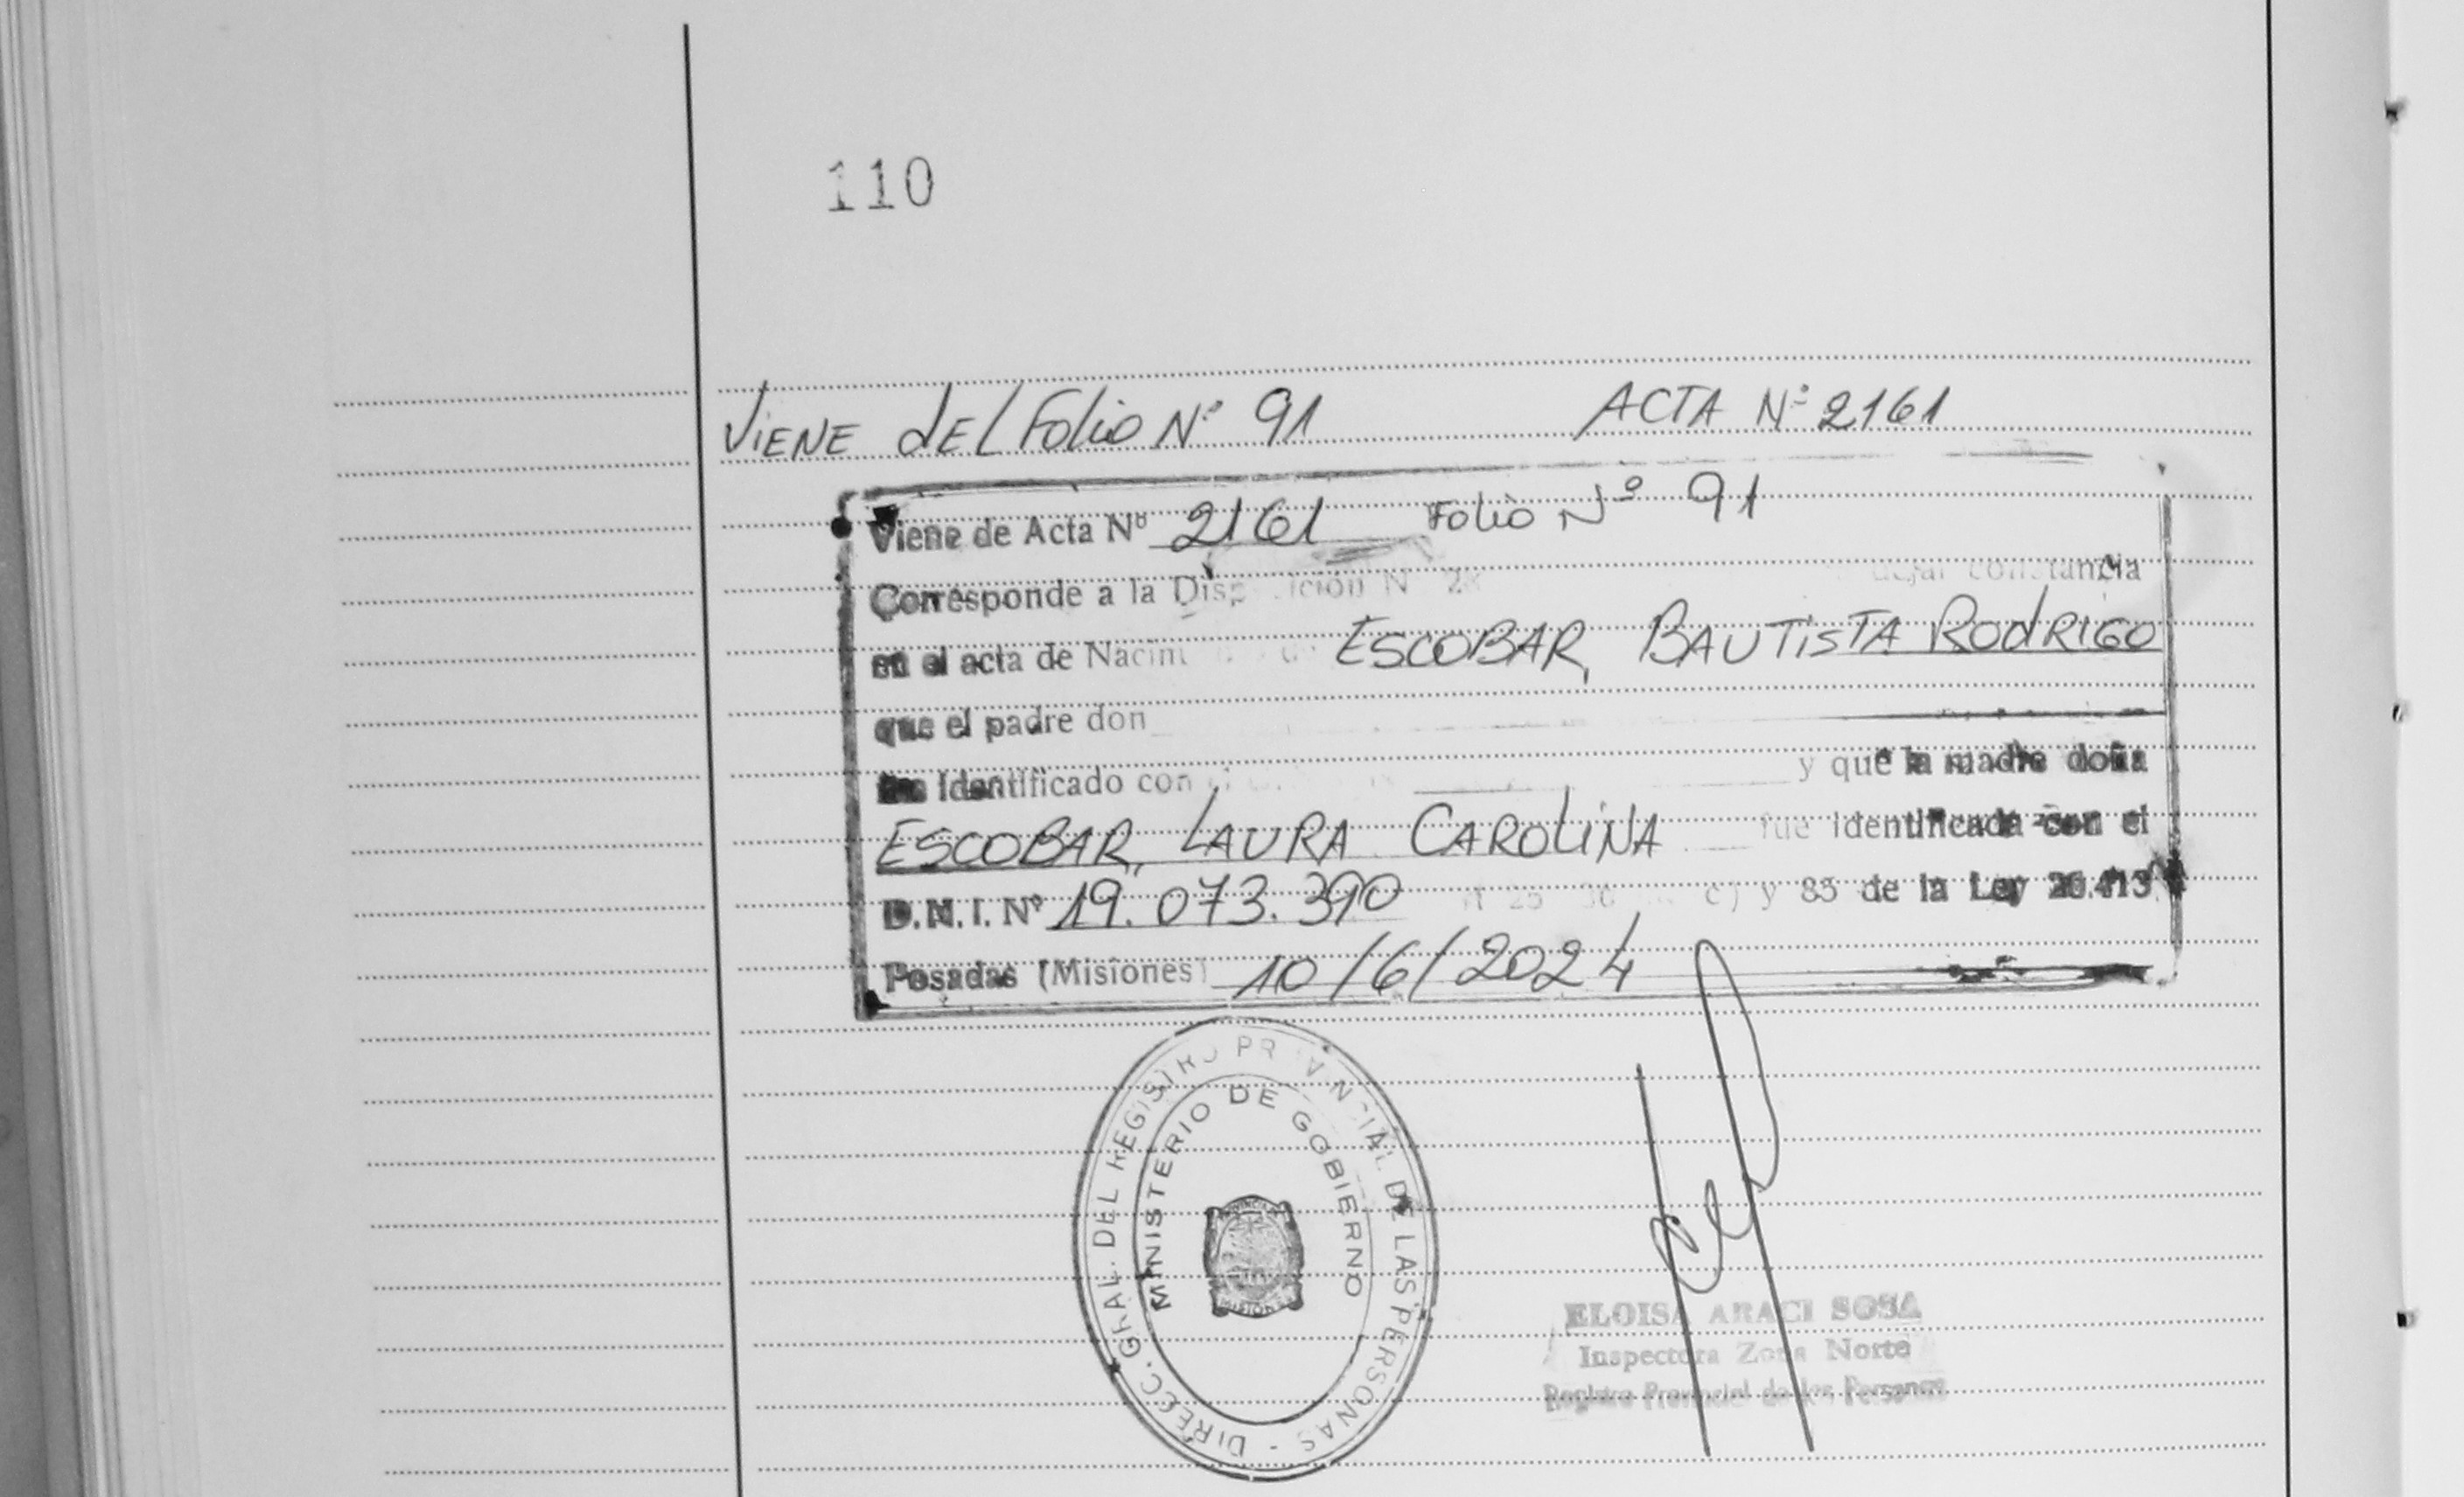 110
VIENE DEL FOLIO Nº 91 ACTA Nº 2161
Viene de Acta Nº 2161 Folio Nº 91
Corresponde a la constancia
en el acta de ESCOBAR, BAUTISTA RODRIGO
que el padre don
Identificado con y que la madre doña
ESCOBAR, LAURA CAROLINA fue identificada con el
D.N.I. Nº 19.073.390 c) y 85 de la Ley 26.413
Posadas (Misiones) 10/6/2024
DIRECC. GRAL. DEL REGISTRO PROVINCIAL DE LAS PERSONAS -
MINISTERIO DE GOBIERNO
MISIONES
ELOISA ARACI SOSA
Inspectora Zona Norte
Registro Provincial de las Personas